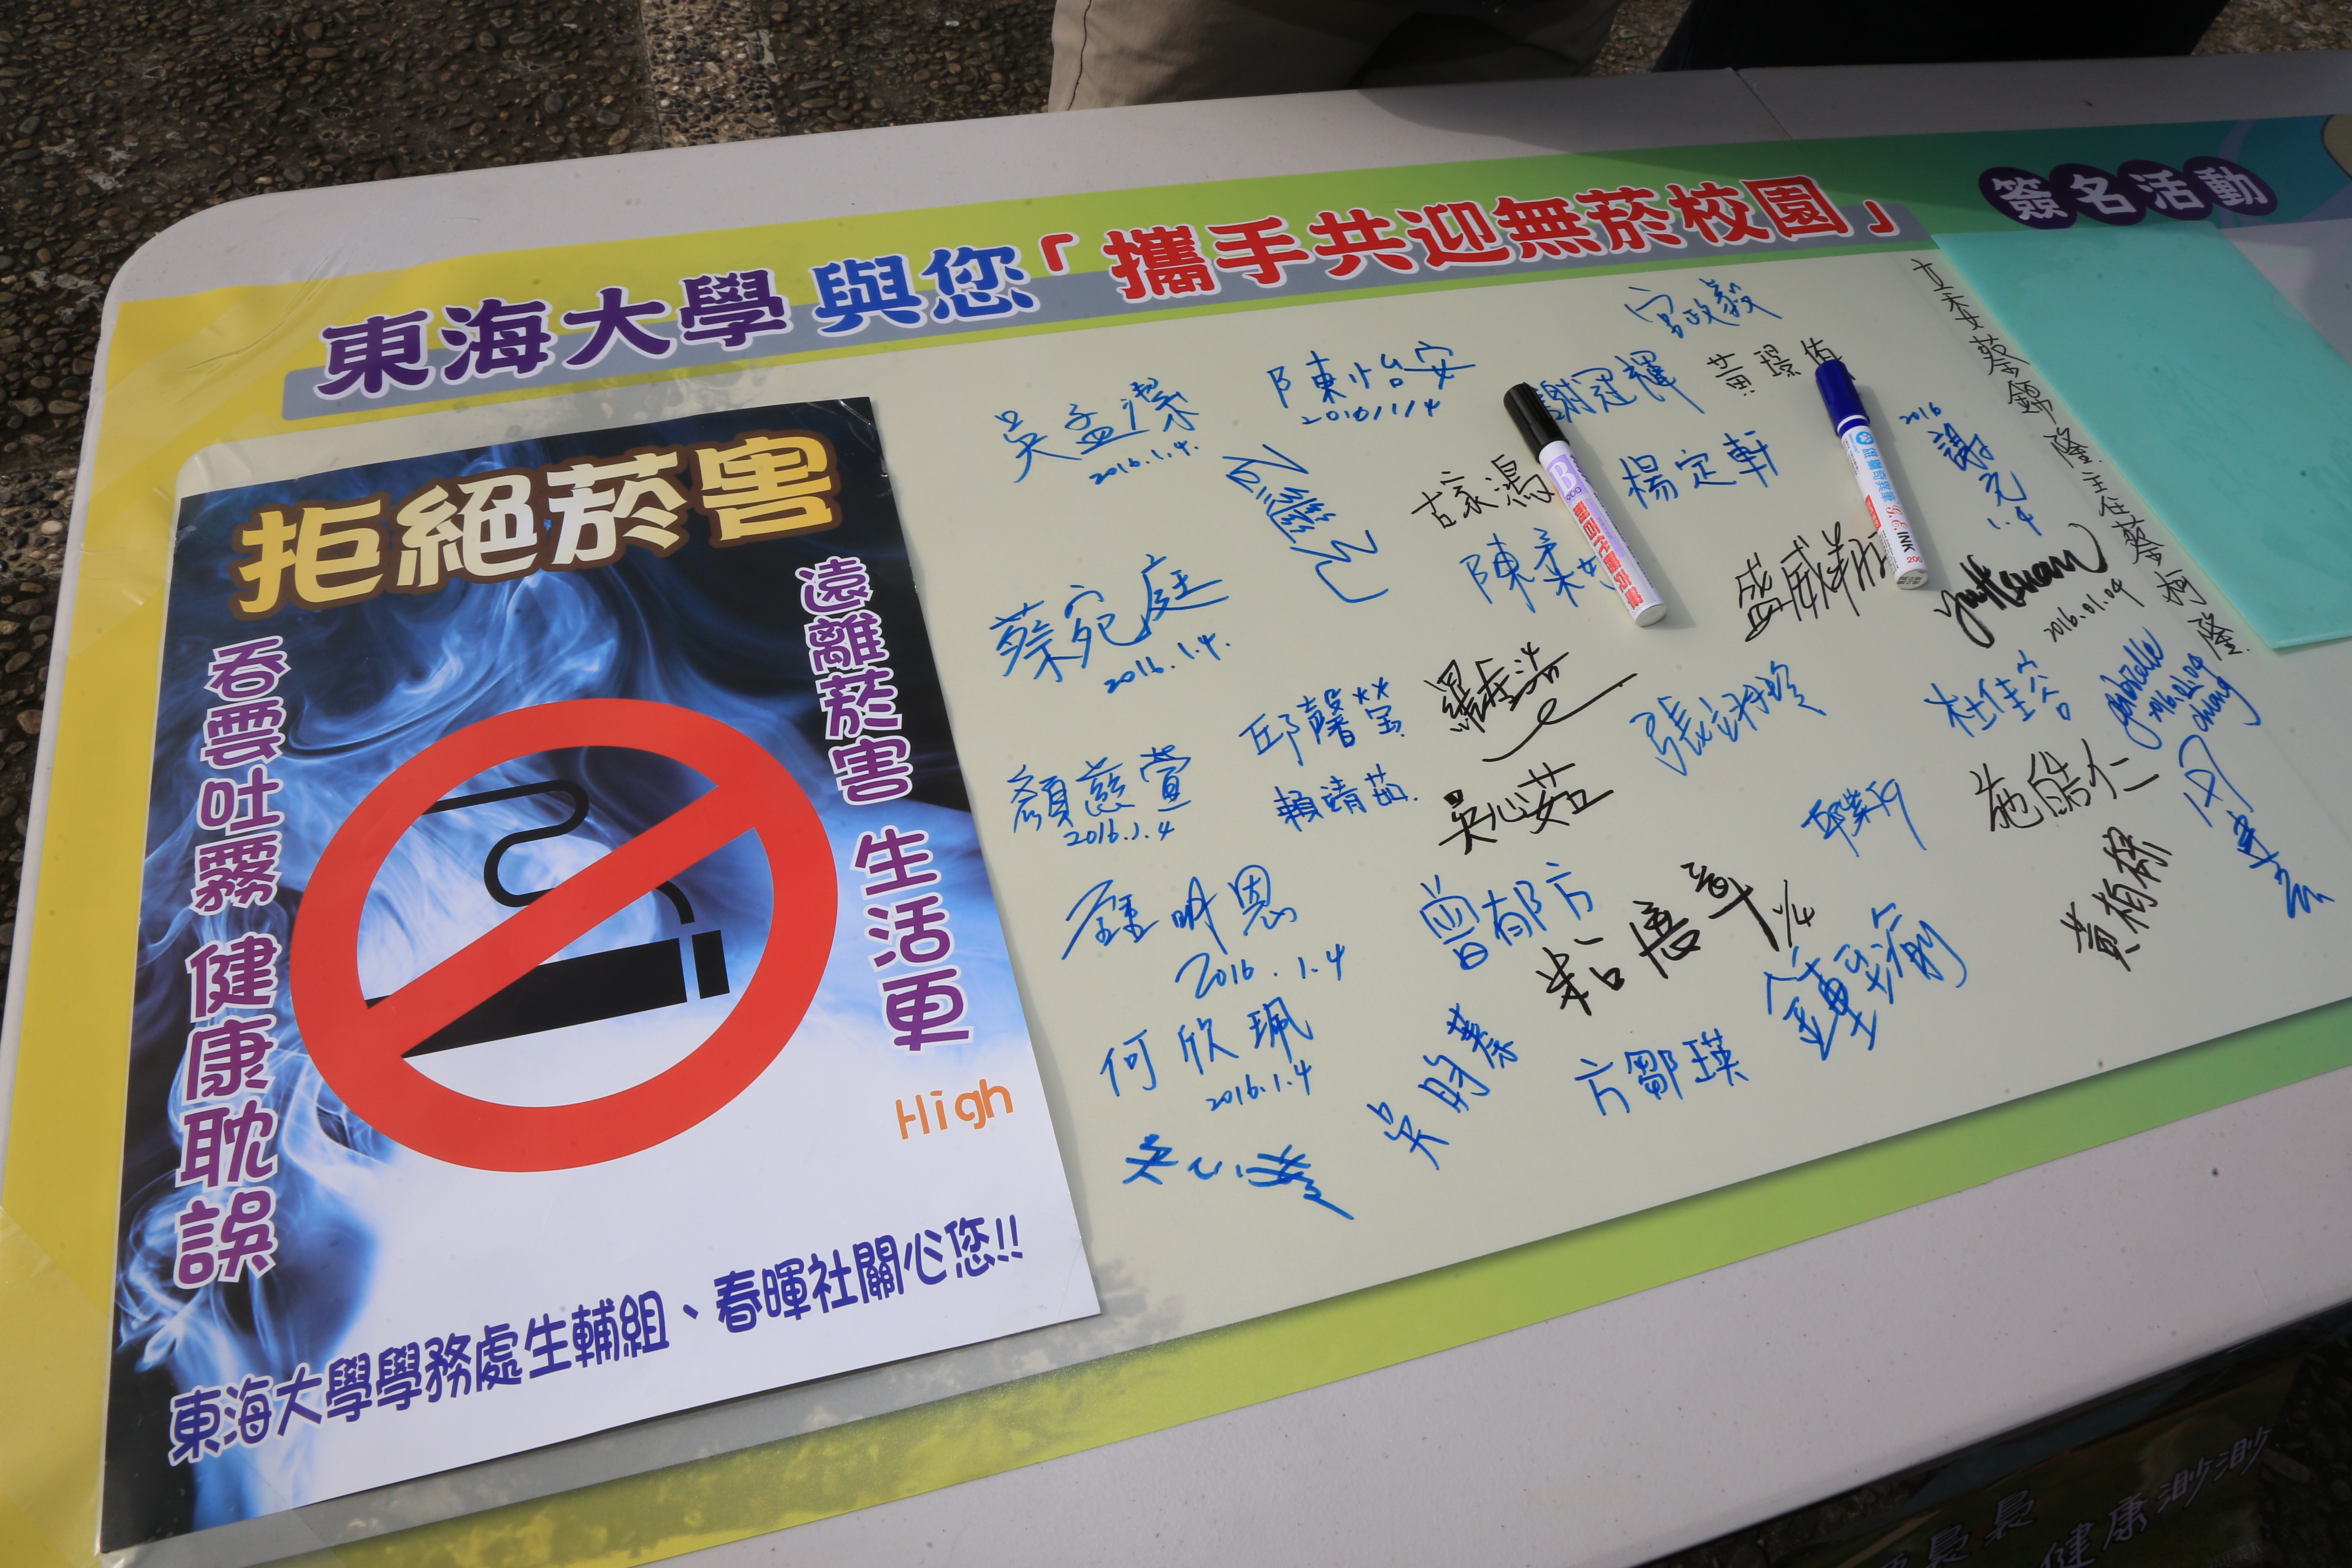 東海大學 與您「攜手共迎無菸校園」
簽名活動
拒絕菸害
遠離菸害 生活更
High
吞雲吐霧 健康耽誤
東海大學學務處生輔組、春暉社關心您!!
吳孟潔
2016.1.4.
陳怡安
2016/1/4
宮政毅
謝冠輝
黃璟
古家鴻
楊定軒
2016
謝元
1.4
立委蔡錦隆.主任蔡柯隆.
蔡宛庭
2016.1.4.
陳柔
盛威翔
2016.01.04
邱馨瑩
張
杜佳容
Gabrielle
2016.01.04
chiang
顏慈萱
2016.1.4
賴靖茹.
吳心茹
施皓仁
鍾明恩
2016.1.4
曾郁方
粘悟章 1/4
黃柏
何欣珮
2016.1.4
吳昀蓁
方鄒瑛
B
900
INK
200
健康渺渺